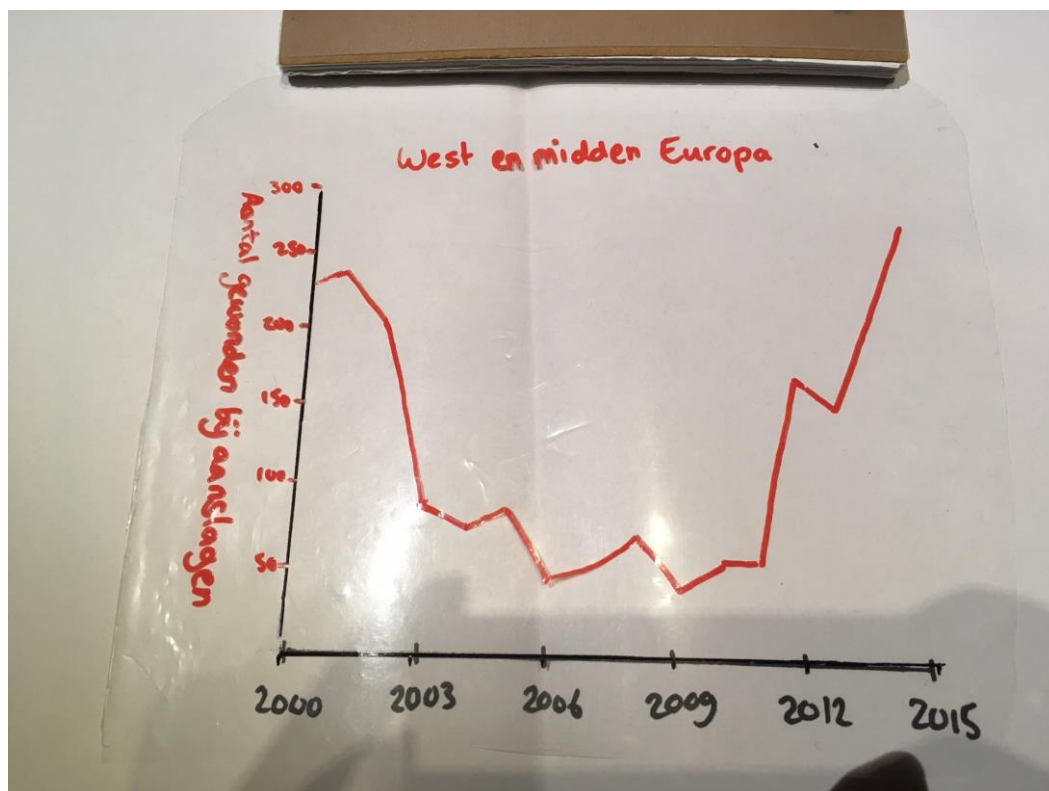 West en midden Europa
Aantal gewonden bij aanslagen
300
250
200
150
100
50
2000 2003 2006 2009 2012 2015